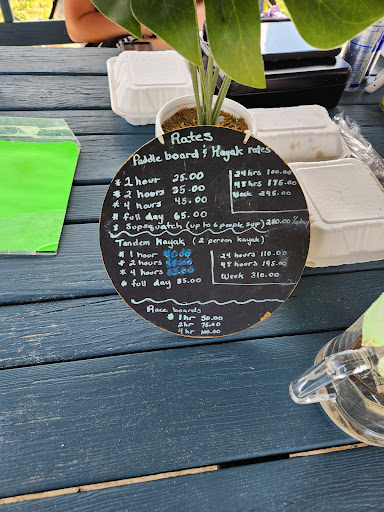 Rates
Paddle board & Kayak rates
* 1 hour 25.00
* 2 hours 35.00
* 4 hours 45.00
* full day 65.00
24 hrs 100.00
48 hrs 175.00
Week 295.00
* Supsquatch (up to 6 people, sup) 280.00
Tandem Kayak (2 person kayak)
* 1 hour 40.00
* 2 hours
* 4 hours 65.00
* full day 85.00
24 hours 110.00
48 hours 195.00
Week 310.00
Race boards
1 hr 50.00
2 hr 75.00
4 hr 100.00